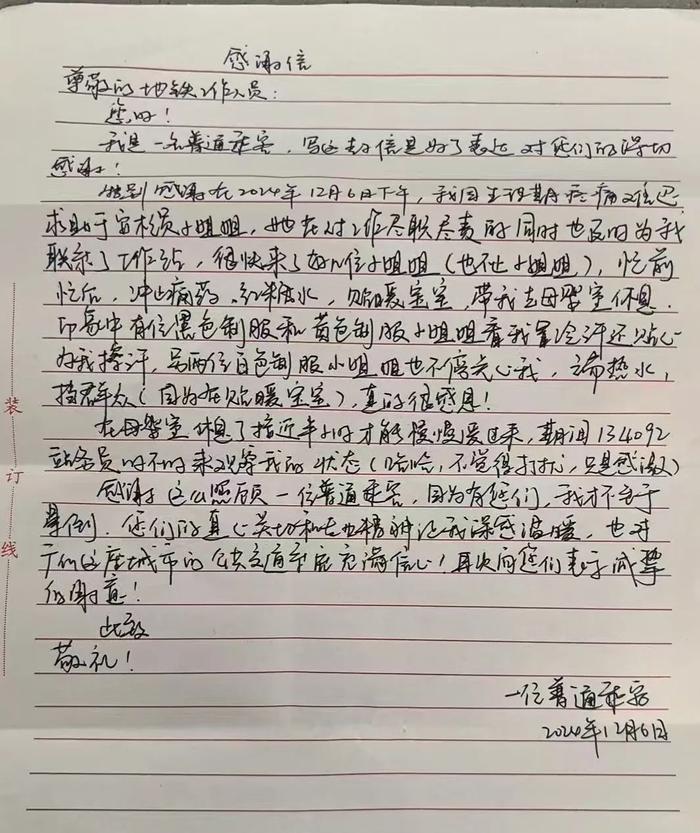 感谢信
尊敬的地铁工作人员：
您好！
我是一名普通乘客，写这封信是为了表达对您们的深切
感谢！
特别感谢在2024年12月6日下午，我因生理期疼痛难忍
求助于安检员小姐姐，她在对工作尽职尽责的同时也及时为我
联系了工作站，很快来了好几位小姐姐（也不止小姐姐），忙前
忙后，冲止痛药、红糖水，贴暖宝宝，带我去母婴室休息.
印象中有位黑色制服和黄色制服小姐姐看我冒冷汗还贴心
为我擦汗，另两位白色制服小姐姐也不停关心我，端热水，
挡群众（因为在贴暖宝宝），真的很感恩！
在母婴室休息了接近半小时才能慢慢缓过来，期间134092
站务员时不时来观察我的状态（哈哈，不觉得打扰，只是感激）
感谢这么照顾一位普通乘客，因为有您们，我才不至于
晕倒. 您们的真心关切和专业精神让我深感温暖，也对
广州这座城市的公共交通系统充满信心！再次向您们表示诚挚
的谢意！
此致
敬礼！
一位普通乘客
2024年12月6日
装
订
线